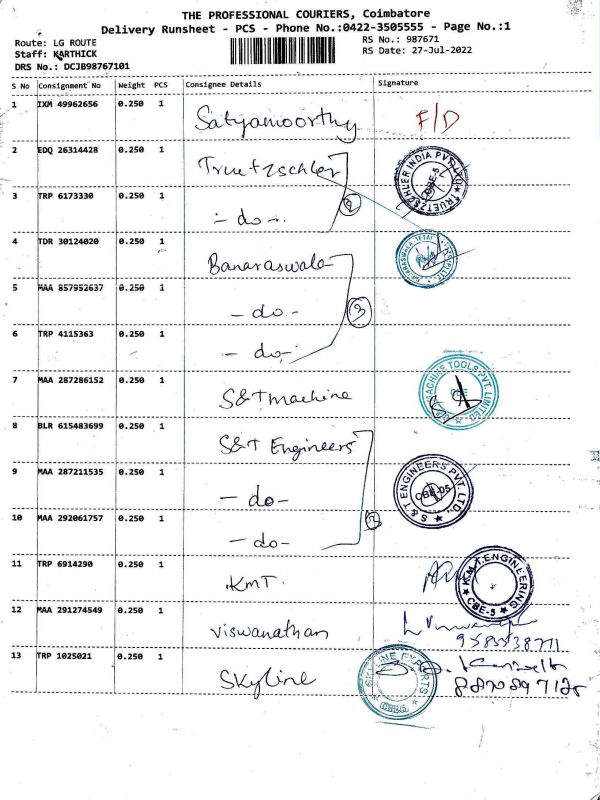 THE PROFESSIONAL COURIERS, Coimbatore
Delivery Runsheet - PCS - Phone No.:0422-3505555 - Page No.:1
Route: LG ROUTE
Staff: KARTHICK
DRS No.: DCJB98767101
RS No.: 987671
RS Date: 27-Jul-2022
S No Consignment No Weight PCS Consignee Details Signature
1 IXM 49962656 0.250 1 Satyamoorthy F/D
2 EDQ 26314428 0.250 1 Truetzschler
TRUETZSCHLER INDIA PVT. CBE-5
3 TRP 6173330 0.250 1 - do -
2
4 TDR 30124020 0.250 1 Banaraswala
5 MAA 857952637 0.250 1 - do -
3
6 TRP 4115363 0.250 1 - do -
7 MAA 287286152 0.250 1 S&T machine
MACHINE TOOLS PVT. LIMITED
8 BLR 615483699 0.250 1 S&T Engineers
9 MAA 287211535 0.250 1 - do -
S & T ENGINEERS PVT. LTD., CBE-05
10 MAA 292061757 0.250 1 - do -
11 TRP 6914290 0.250 1 KMT.
K.M.T. ENGINEERING CBE-5
12 MAA 291274549 0.250 1 Viswanathan
13 TRP 1025021 0.250 1 Skyline
SKYLINE EXPORTS